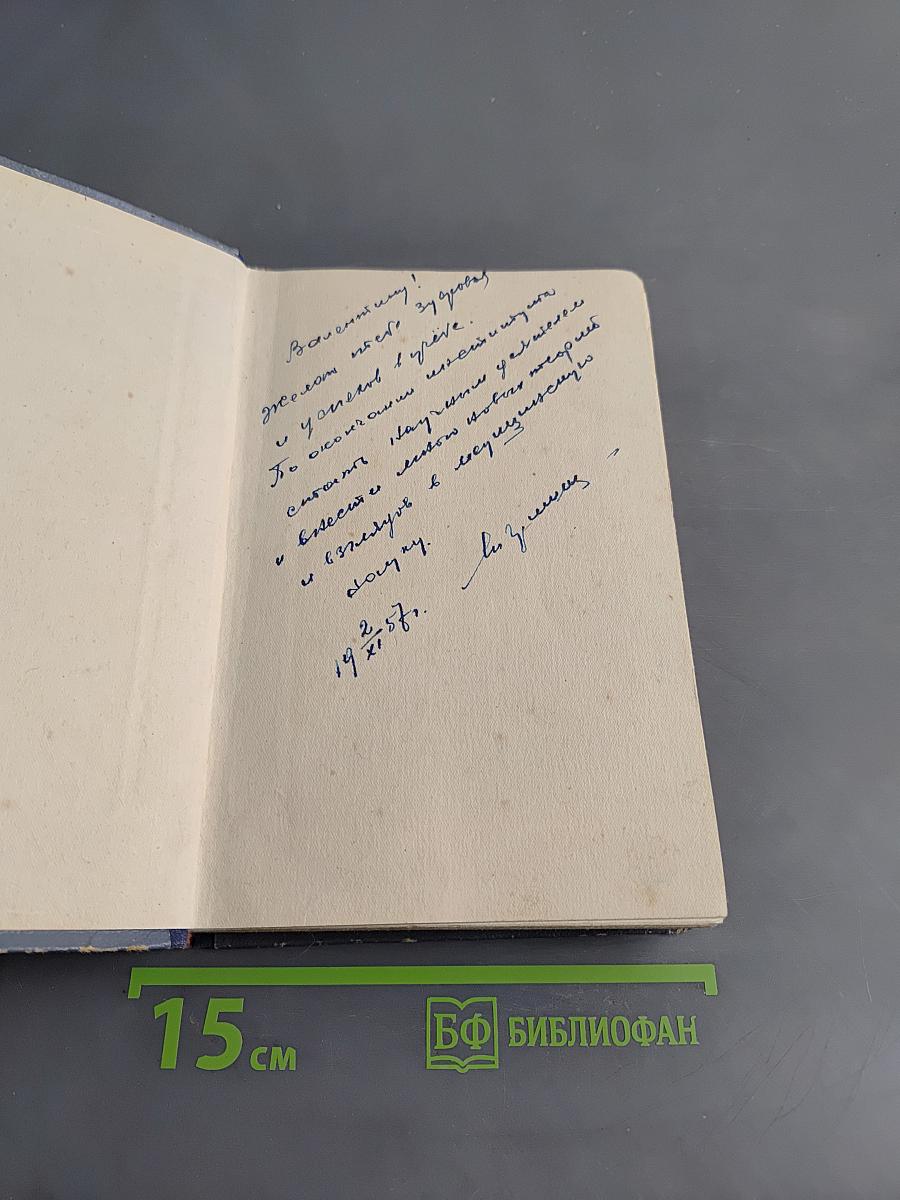 Валентину!
Желаю тебе здоровья
и успехов в учёбе.
По окончании института
стать научным деятелем
и внести много новых теорий
и взглядов в медицинскую
науку.
19 2/XI 57 г.
15 см
БФ БИБЛИОФАН